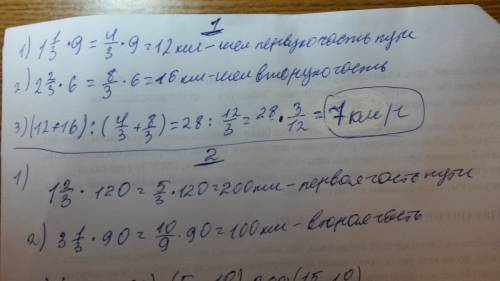 1
1) 1 1/3 · 9 = 4/3 · 9 = 12 км – шел первую часть пути
2) 2 2/3 · 6 = 8/3 · 6 = 16 км – шел вторую часть
3) (12+16) : (4/3 + 8/3) = 28 : 12/3 = 28 · 3/12 = 7 км/ч
2
1)
1 2/3 · 120 = 5/3 · 120 = 200 км – первая часть пути
2) 3 1/3 · 90 = 10/9 · 90 = 100 км – вторая часть